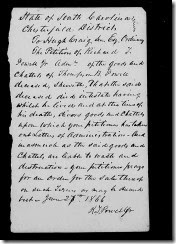 State of South Carolina
Chesterfield District
To Hugh Craig Esq. Ordinary
The Petition of Richard T.
Powell Jr Admr. of the goods and
Chattels of Thompson R. Powell
deceased, Sheweth, That the said
deceased did in intestate having
whilst he lived and at the time of
his death, divers goods and chattels
upon which your petitioner has taken
out Letters of Administration. And
inasmuch as the said goods and
Chattels are liable to waste and
destruction. Your petitioner prays
for an Order for the Sale thereof
on such Terms as may be deemed
best. Jan 27th 1866